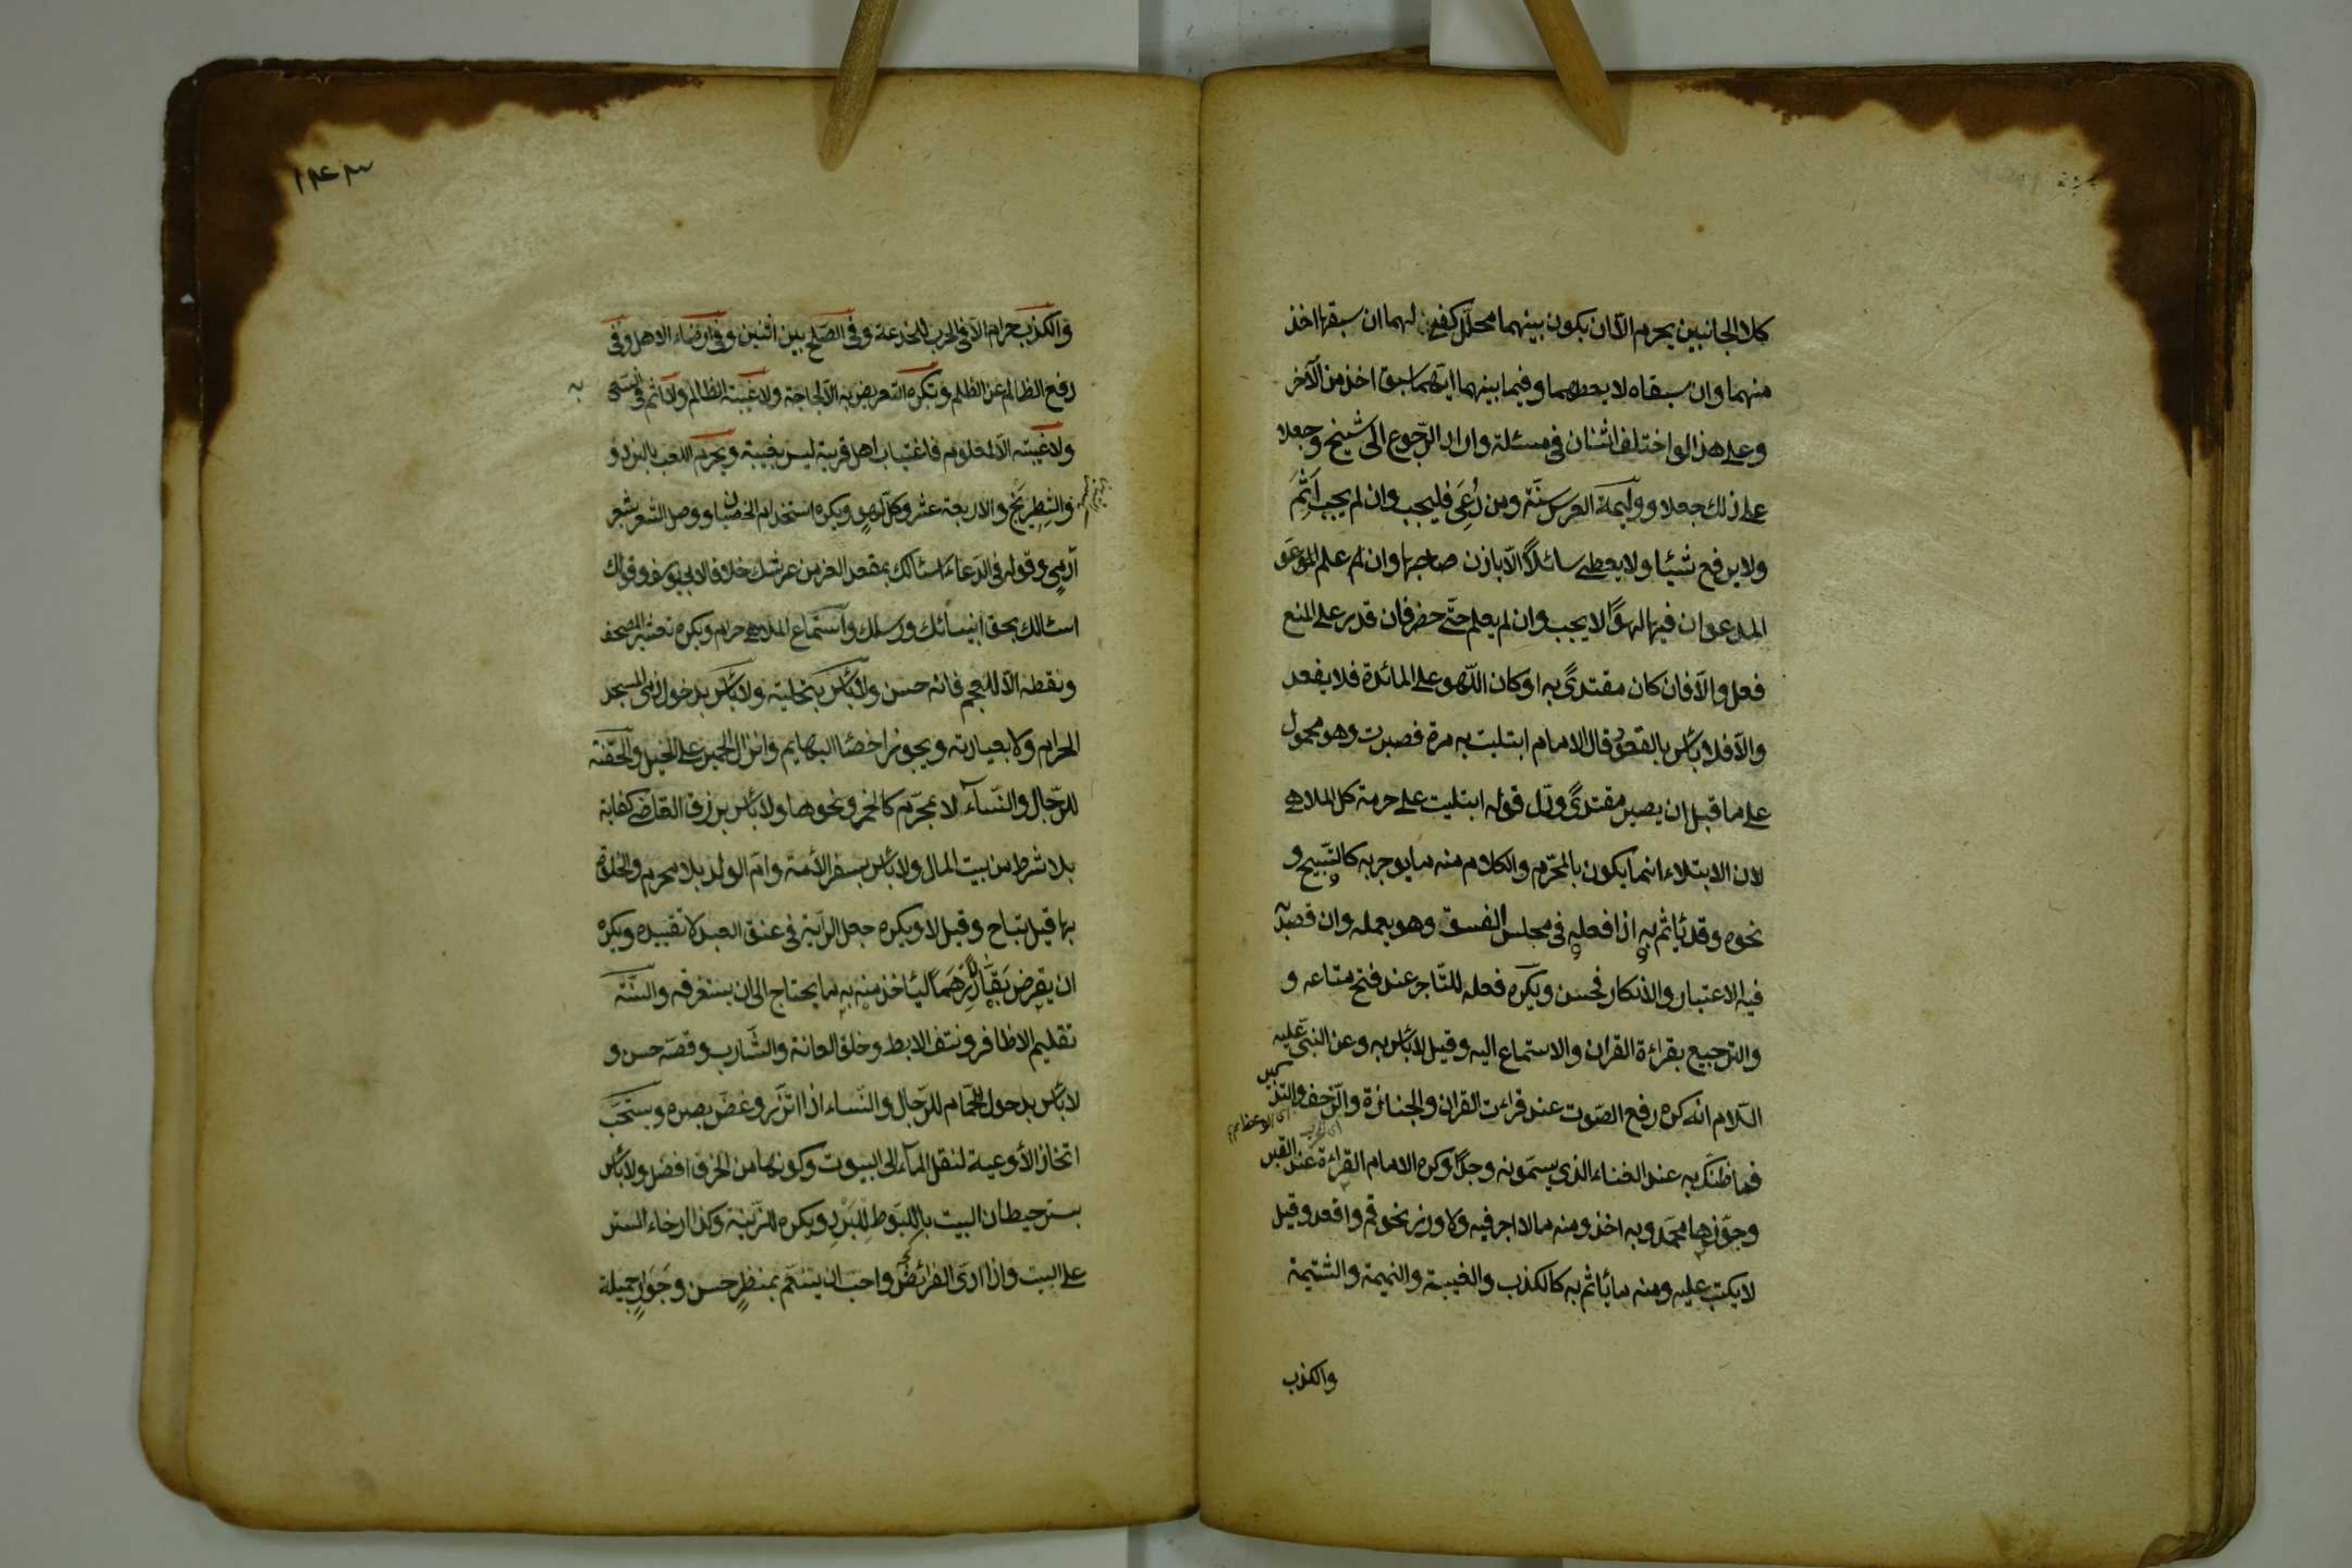 كلا الجانبين يحرم الا ان يكون بينهما محلل كفىء لهما ان سبقهما اخذ
منهما وان سبقاه لا يعطهما وفيما بينهما ايهما سبق اخذ من الآخر
وعلى هذا لو اختلف اثنان فى مسئلة وارادا الرجوع الى شيخ وجعلا
على ذلك جعلا ووليمة العرس سنة ومن دعى فليجب وان لم يجب اثم
ولا يرفع شيئا ولا يعطى سائلاً الّا باذن صاحبها وان علم المدعو
المدعو ان فيها لهوًا لا يجب وان لم يعلم حتّى حضر فان قدر على المنع
فعل والّا فان كان مقتدىً به او كان اللّهو على المائدة فلا يقعد
والّا فلا بأس بالقعود قال الامام ابتليت به مرة فصبرت وهو محمول
على ما قبل ان يصير مقتدىً ودلّ قوله ابتليت على حرمة كل الملاهى
لان الابتلاء انما يكون بالمحرّم والكلام منه ما يوجر به كالتّسبيح و
نحوه وقد يأثم به اذا فعله فى مجلس الفسق وهو يعمله وان قصد
فيه الاعتبار والانكار فحسن ويكره فعله للتّاجر عند فتح متاعه و
والترجيع بقراءة القران والاستماع اليه وقيل لا بأس به وعن النبى عليه
السّلام انه كره رفع الصّوت عند قراءت القران والجنازة والزحف والتذكير
اى الوعظ
اى الحرب
فما ظنك به عند الغناء الذى يسمونه وجدًا وكره الامام القراءة عند القبر
وجوّزها محمّد وبه اخذ ومنه ما لا اجر فيه ولا وزر نحو قم واقعد وقيل
لا يكتب عليه ومنه ما يأثم به كالكذب والغيبة والنميمة والشتيمة
والكذب
١٤٣
والكذب حرام الّا فى الحرب للخدعة وفى الصّلح بين اثنين وفى ارضاء الاهل وفى
دفع الظالم عن الظلم ويكره التعريض به الّا لحاجة ولا غيبة لظالم ولا اثم فى السعى به
ولا غيبة الّا لمعلوم فاغتياب اهل قرية ليس بغيبة ويحرم اللعب بالنرد و
والشطرنج والاربعة عشر وكل لهو ويكره استخدام الخصيان ووصل الشعر بشعر
آدمىٍ وقوله فى الدعاء اسئالك بمقعد العز من عرشك خلافا لابى يوسف وقوله
اسئالك بحق انبيائك ورسلك واستماع الملاهى حرام ويكره تعشير المصحف
ونقطه الّا للعجم فانه حسن ولا بأس بتحليته ولا بأس بدخول الذمى المسجد
الحرام ولا بعيادته ويجوز اخصاء البهايم وانزال الحمير على الخيل والحقنة
للرّجال والنّسآء لا بمحرّم كالخمر ونحوها ولا بأس برزق القاضى كفاية
بلا شرط من بيت المال ولا بأس بسفر الأمة وامّ الولد بلا محرم والخلوة
بها قيل تباح وقيل لا ويكره جعل الرّاية فى عنق العبد لا تقييده ويكره
ان يقرض بقّالًا درهمًا ليأخذ منه به ما يحتاج الى ان يستغرقه والسنّة
تقليم الاظافر ونتف الابط وحلق العانة والشّارب وقصّه حسن و
لا بأس بدخول الحمّام للرّجال والنّساء اذا اتّزر وغضّ بصره ويستحبّ
اتخاذ الأوعية لنقل المآء الى البيوت وكونها من الخزف افضل ولا بأس
بستر حيطان البيت باللبّود للبَرْدِ ويكره للزّينة وكذا ارخاء الستر
على البيت واذا ادّى الفرائض واحبّ ان يتنعّم بمنظرٍ حسن وجَوَارٍ جميلة